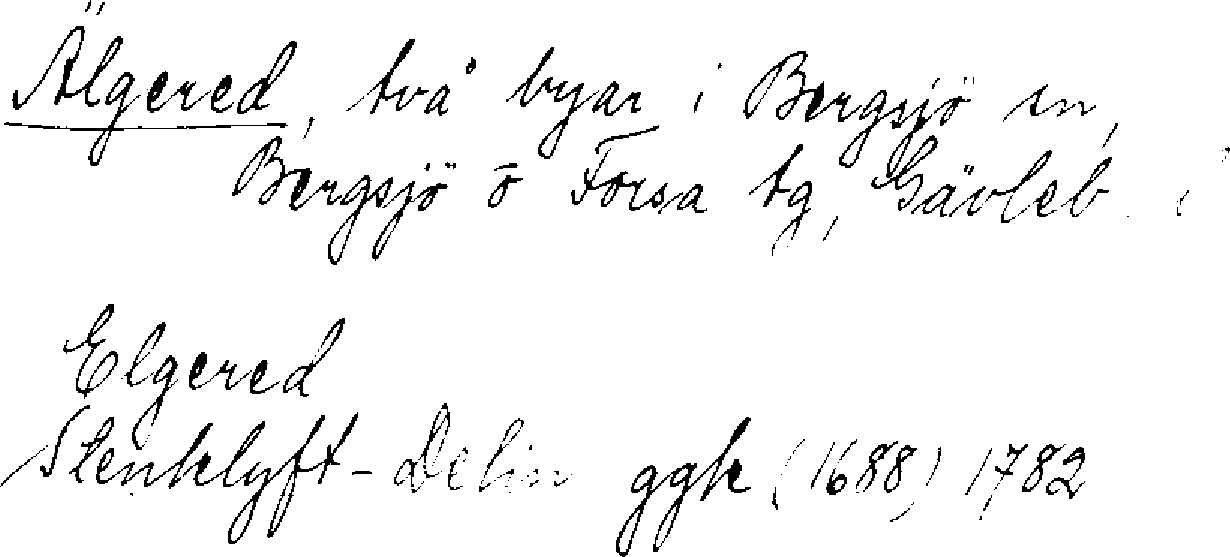 Älgered, två byar i Bergsjö sn,
Bergsjö o Forsa tg, Gävleb.
Elgered
Stenklyft - Delin ggk (1688) 1782